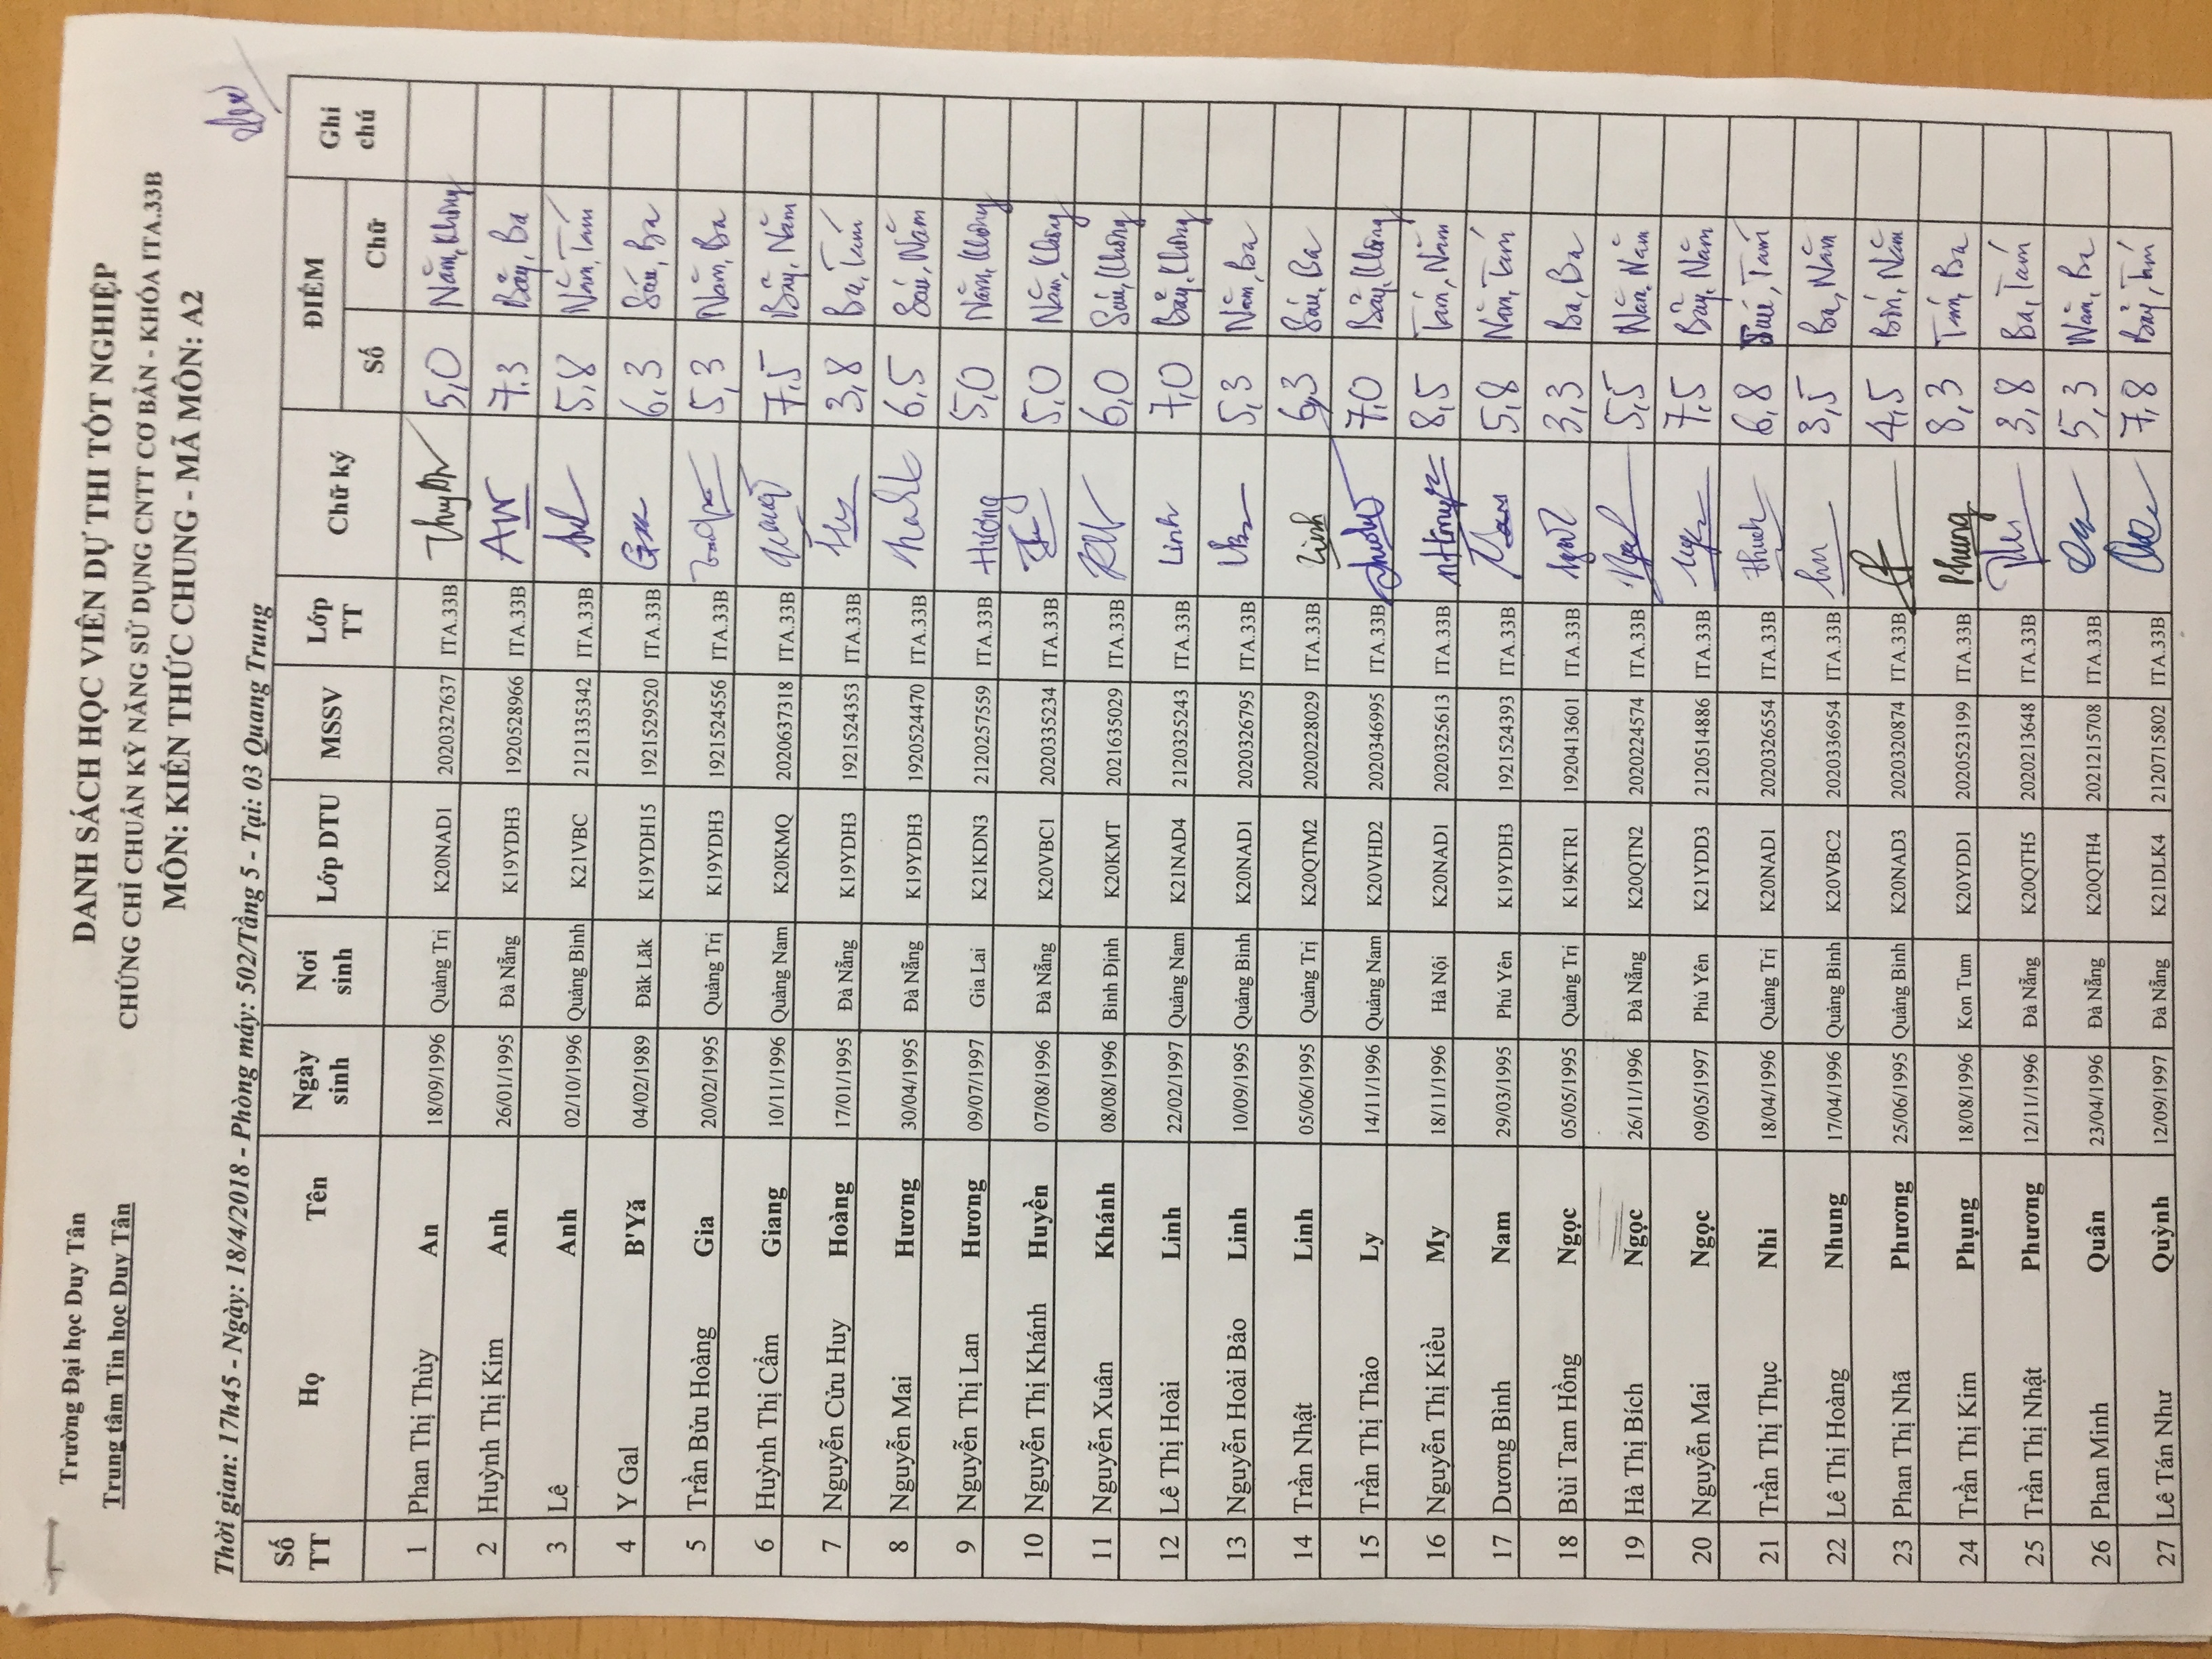 Trường Đại học Duy Tân
Trung tâm Tin học Duy Tân
DANH SÁCH HỌC VIÊN DỰ THI TỐT NGHIỆP
CHỨNG CHỈ CHUẨN KỸ NĂNG SỬ DỤNG CNTT CƠ BẢN - KHÓA ITA.33B
MÔN: KIẾN THỨC CHUNG - MÃ MÔN: A2
Thời gian: 17h45 - Ngày: 18/4/2018 - Phòng máy: 502/Tầng 5 - Tại: 03 Quang Trung
Số TT Họ Tên Ngày sinh Nơi sinh Lớp DTU MSSV Lớp TT Chữ ký ĐIỂM Ghi chú
Số Chữ
1 Phan Thị Thùy An 18/09/1996 Quảng Trị K20NAD1 2020327637 ITA.33B 5,0 Năm, Không
2 Huỳnh Thị Kim Anh 26/01/1995 Đà Nẵng K19YDH3 1920528966 ITA.33B 7.3 Bảy, Ba
3 Lê Anh 02/10/1996 Quảng Bình K21VBC 2121335342 ITA.33B 5,8 Năm, Tám
4 Y Gal B'Yă 04/02/1989 Đăk Lăk K19YDH15 1921529520 ITA.33B 6,3 Sáu, Ba
5 Trần Bửu Hoàng Gia 20/02/1995 Quảng Trị K19YDH3 1921524556 ITA.33B 5,3 Năm, Ba
6 Huỳnh Thị Cẩm Giang 10/11/1996 Quảng Nam K20KMQ 2020637318 ITA.33B 7,5 Bảy, Năm
7 Nguyễn Cửu Huy Hoàng 17/01/1995 Đà Nẵng K19YDH3 1921524353 ITA.33B 3,8 Ba, Tám
8 Nguyễn Mai Hương 30/04/1995 Đà Nẵng K19YDH3 1920524470 ITA.33B 6,5 Sáu, Năm
9 Nguyễn Thị Lan Hương 09/07/1997 Gia Lai K21KDN3 2120257559 ITA.33B Hương 5,0 Năm, Không
10 Nguyễn Thị Khánh Huyền 07/08/1996 Đà Nẵng K20VBC1 2020335234 ITA.33B 5,0 Năm, Không
11 Nguyễn Xuân Khánh 08/08/1996 Bình Định K20KMT 2021635029 ITA.33B 6,0 Sáu, Không
12 Lê Thị Hoài Linh 22/02/1997 Quảng Nam K21NAD4 2120325243 ITA.33B Linh 7,0 Bảy, Không
13 Nguyễn Hoài Bảo Linh 10/09/1995 Quảng Bình K20NAD1 2020326795 ITA.33B 5,3 Năm, Ba
14 Trần Nhật Linh 05/06/1995 Quảng Trị K20QTM2 2020228029 ITA.33B Linh 6,3 Sáu, Ba
15 Trần Thị Thảo Ly 14/11/1996 Quảng Nam K20VHD2 2020346995 ITA.33B 7,0 Bảy, Không
16 Nguyễn Thị Kiều My 18/11/1996 Hà Nội K20NAD1 2020325613 ITA.33B 8,5 Tám, Năm
17 Dương Bình Nam 29/03/1995 Phú Yên K19YDH3 1921524393 ITA.33B 5,8 Năm, Tám
18 Bùi Tam Hồng Ngọc 05/05/1995 Quảng Trị K19KTR1 1920413601 ITA.33B 3,3 Ba, Ba
19 Hà Thị Bích Ngọc 26/11/1996 Đà Nẵng K20QTN2 2020224574 ITA.33B 5,5 Năm, Năm
20 Nguyễn Mai Ngọc 09/05/1997 Phú Yên K21YDD3 2120514886 ITA.33B 7,5 Bảy, Năm
21 Trần Thị Thục Nhi 18/04/1996 Quảng Trị K20NAD1 2020326554 ITA.33B 6,8 Sáu, Tám
22 Lê Thị Hoàng Nhung 17/04/1996 Quảng Bình K20VBC2 2020336954 ITA.33B 3,5 Ba, Năm
23 Phan Thị Nhã Phương 25/06/1995 Quảng Bình K20NAD3 2020320874 ITA.33B 4,5 Bốn, Năm
24 Trần Thị Kim Phụng 18/08/1996 Kon Tum K20YDD1 2020523199 ITA.33B Phung 8,3 Tám, Ba
25 Trần Thị Nhật Phương 12/11/1996 Đà Nẵng K20QTH5 2020213648 ITA.33B 3,8 Ba, Tám
26 Phan Minh Quân 23/04/1996 Đà Nẵng K20QTH4 2021215708 ITA.33B 5,3 Năm, Ba
27 Lê Tấn Như Quỳnh 12/09/1997 Đà Nẵng K21DLK4 2120715802 ITA.33B 7,8 Bảy, Tám